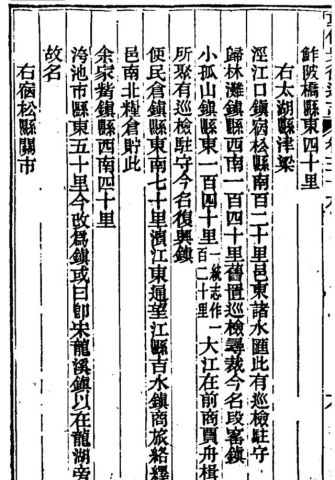 鮓陂橋縣東四十里
右太湖縣津梁
涇江口鎮宿松縣南百二十里邑東諸水匯此有巡檢駐守
歸林灘鎮縣西南一百四十里舊置巡檢尋裁今名段窰鎮
小孤山鎮縣東一百四十里一統志作一百二十里大江在前商賈舟楫
所聚有巡檢駐守今名復興鎮
便民倉鎮縣東南七十里濱江東通望江縣吉水鎮商旅絡繹
邑南北糧倉貯此
余家
鎮縣西南四十里
洿池市縣東五十里今改爲鎮或曰卽宋龍溪鎮以在龍湖旁
故名
右宿松縣關市